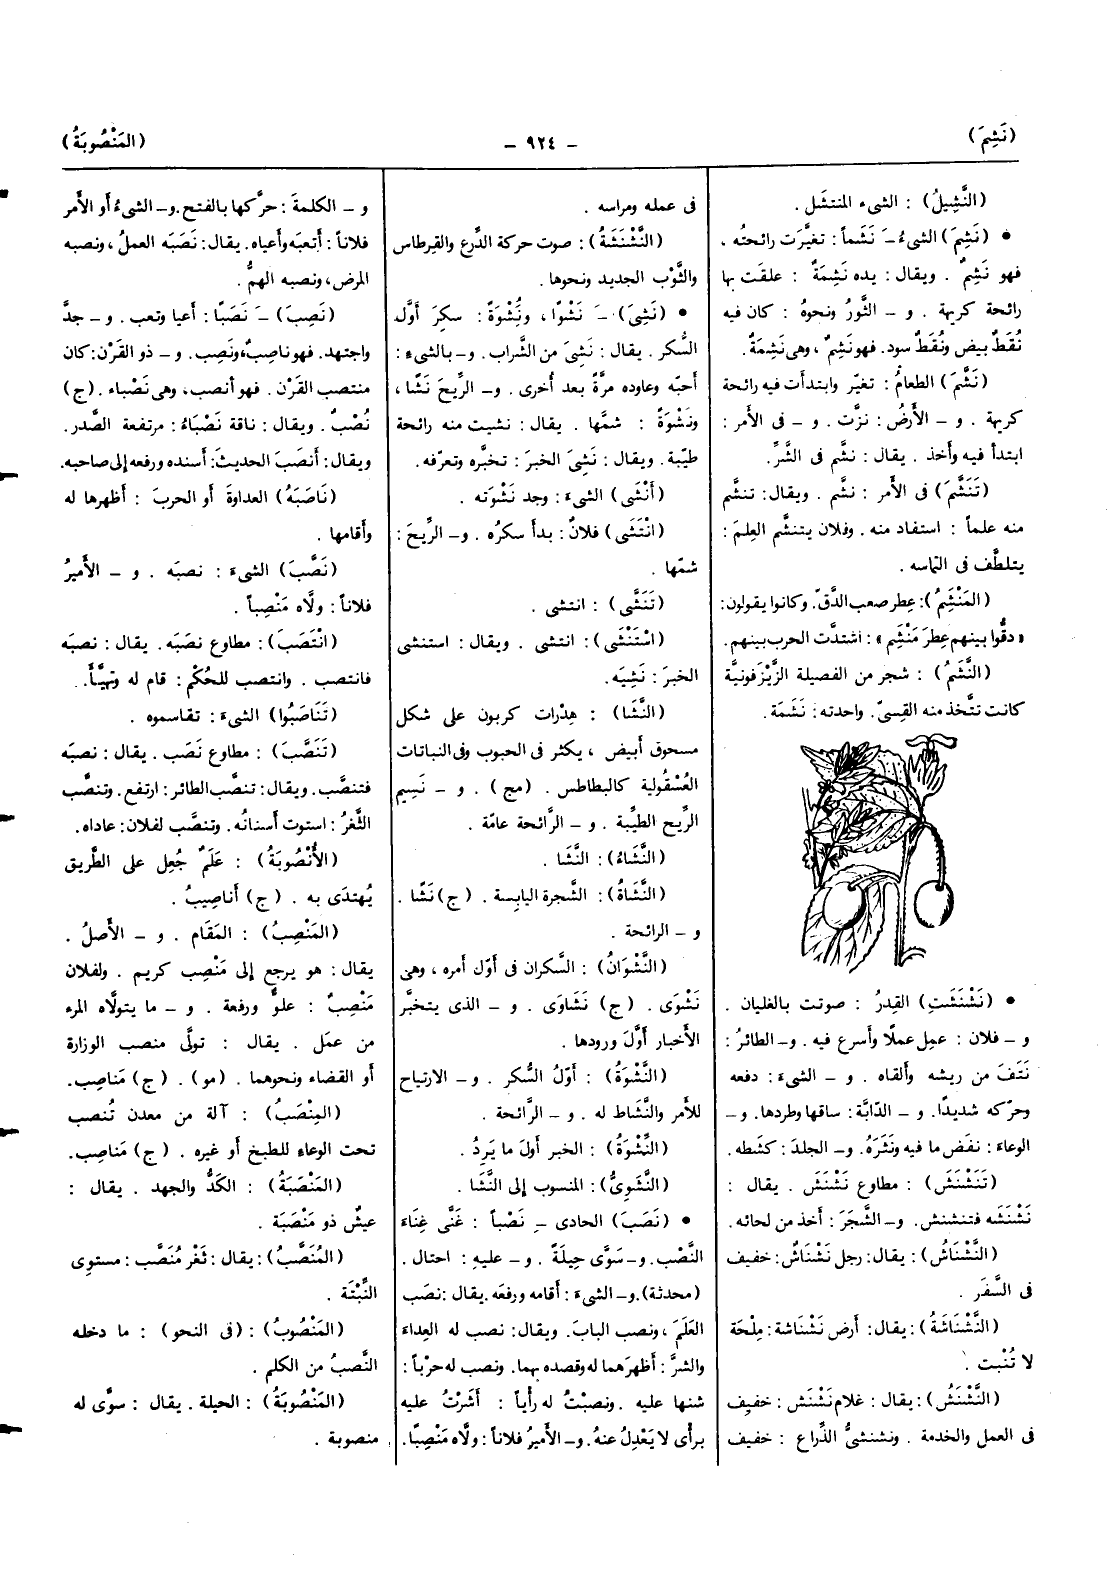 (نَشِمَ)
- ٩٢٤ -
(المَنْصُوبَةُ)
(النَّشِيلُ) : الشىء المنتشَل .
• (نَشِمَ) الشىءُ ـَ نَشَماً : تغيَّرَت رائحتُه ،
فهو نَشِمٌ . ويقال : يده نَشِمَةٌ : علقَت بها
رائحة كريهة . و - الثَّورُ ونحوهُ : كان فيه
نُقَطٌ بيض ونُقَط سود. فهو نَشِمٌ ، وهى نَشِمَةٌ.
(نَشَّمَ) الطعامُ : تغيّر وابتدأت فيه رائحة
كريهة . و - الأَرضُ : نزَّت . و - فى الأَمر :
ابتدأ فيه وأَخذ . يقال : نشَّم فى الشَّرِّ.
(تَنَشَّمَ) فى الأَمر : نشَّم . ويقال : تنشَّم
منه علماً : استفاد منه . وفلان يتنشَّم العِلمَ :
يتلطَّف فى التماسه .
(المَنْشِمُ) : عِطر صعب الدَّقّ. وكانوا يقولون:
« دقُّوا بينهم عِطرَ مَنْشِم » : اشتدَّت الحرب بينهم.
(النَّشَمُ) : شجر من الفصيلة الزَّيْزَفونيَّة
كانت تتَّخذ منه القِسىّ. واحدته : نَشَمَة.
• (نَشْنَشَتِ) القِدرُ : صوتت بالغليان .
و - فلان : عمِل عملًا وأَسرع فيه . و- الطائرُ :
نَتَفَ من ريشه وأَلقاه . و - الشىءَ : دفعه
وحرّكه شديدًا. و - الدّابَّة : ساقها وطردها. و -
الوعاءَ : نفَض ما فيه ونَثَرَهُ. و- الجلدَ : كشَطه .
(تَنَشْنَشَ) : مطاوع نَشْنَش . يقال :
نَشْنَشَه فتنشنش. و- الشَّجَرَ : أَخذ من لحائه .
(النَّشْنَاشُ) : يقال : رجل نَشْنَاشٌ : خفيف
فى السَّفَر .
(النَّشْنَاشَةُ) : يقال : أَرض نَشْنَاشة : مِلحَة
لا تُنْبت .
(النَّشْنَشُ) : يقال : غلام نَشْنَش : خفيف
فى العمل والخدمة . ونشنشىُّ الذِّراع : خفيف
فى عمله ومراسه .
(النَّشْنَشَةُ) : صوت حركة الدِّرع والقِرطاس
والثَّوْب الجديد ونحوها.
• (نَشِىَ) ـَ نَشْوا ، ونُشْوَةً : سكِرَ أَوّل
السُّكر . يقال : نَشِىَ من الشَّراب. و- بالشىء :
أَحبّه وعاوده مرَّةً بعد أُخرى . و- الرِّيحَ نَشًا ،
ونَشْوَةً : شمَّها . يقال : نشيت منه رائحة
طيّبة . ويقال : نَشِىَ الخبرَ : تخبَّره وتعرّفه .
(أَنْشَى) الشىءَ : وجد نَشْوَته .
(انْتَشَى) فلانٌ : بدأَ سكرُه . و- الرِّيحَ :
شمّها .
(تَنَشَّى) : انتشى .
(اسْتَنْشَى) : انتشى . ويقال : استنشى
الخبرَ : نَشِيَه.
(النَّشَا) : هِدْرات كربون على شكل
مسحوق أَبيض ، يكثر فى الحبوب وفى النباتات
العُسْقُولية كالبطاطس . (مج) . و - نَسِيم
الرِّيح الطيِّبة . و - الرَّائحة عامّة .
(النَّشَاءُ) : النَّشَا .
(النَّشَاةُ) : الشَّجرة اليابِسة . (ج) نَشًا .
و - الرائحة .
(النَّشْوَانُ) : السَّكران فى أَوّل أَمره ، وهى
نَشْوَى . (ج) نَشَاوَى . و - الذى يتخبَّر
الأَخبار أَوَّلَ ورودها .
(النَّشْوَةُ) : أَوّلُ السُّكر . و- الارتياح
للأَمر والنَّشاط له . و - الرَّائحة .
(النِّشْوَةُ) : الخبر أَولَ ما يَرِدُ .
(النَّشَوِىُّ) : المنسوب إلى النَّشَا .
• (نَصَبَ) الحادى ـِ نَصْباً : غَنَّى غِنَاءَ
النَّصْب. و- سَوَّى حِيلَةً . و- عليهِ : احتال .
(محدثة). و- الشىءَ : أَقامه ورفعَه. يقال : نصَب
العَلَمَ ، ونصب البابَ. ويقال : نصب له العِداءَ
والشرَّ : أَظهرَهما له وقصده بهما. ونصب له حرْباً :
شنها عليه . ونصبْتُ له رأْياً : أَشَرْتُ عليه
برأى لا يَعْدِلُ عنهُ. و- الأَميرُ فلاناً : ولَّاه مَنْصِبًا.
و - الكلمةَ : حرَّكها بالفتح. و- الشىءُ أَو الأَمر
فلاناً : أَتعبَه وأَعياه. يقال : نَصَبَه العملُ ، ونصبه
المرض ، ونصبه الهمُّ .
(نَصِبَ) ـَ نَصَبًا : أَعيا وتعب . و - جدَّ
واجتهد. فهو ناصِبٌ ونَصِب. و - ذو القَرْن : كان
منتصب القَرْن . فهو أَنصب ، وهى نَصْباء . (ج)
نُصْبٌ . ويقال : ناقة نَصْبَاءُ : مرتفعة الصَّدر .
ويقال : أَنصَبَ الحديثَ : أَسنده ورفعه إلى صاحبه.
(نَاصَبَهُ) العداوةَ أَو الحربَ : أَظهرها له
وأَقامها .
(نَصَّبَ) الشىءَ : نصبَه . و - الأَميرُ
فلاناً : ولَّاه مَنْصِباً .
(انْتَصَبَ) : مطاوع نصَبَه . يقال : نصبَه
فانتصب . وانتصب للحُكْم : قام له وتهيَّأَ.
(تَنَاصَبُوا) الشىءَ : تقاسموه .
(تَنَصَّبَ) : مطاوع نَصَب . يقال : نصبَه
فتنصَّب. ويقال : تنصَّب الطائر : ارتفع. وتنصَّب
الثَّغرُ : استوت أَسنانُه . وتنصَّب لفلان : عاداه.
(الأُنْصُوبَةُ) : عَلَمٌ جُعِل على الطَّريق
يُهتدَى به . (ج) أَناصِيبُ .
(المَنْصِبُ) : المَقَام . و - الأَصلُ .
يقال : هو يرجع إلى مَنْصِب كريم . ولفلان
مَنْصِبٌ : علوٌّ ورفعة . و - ما يتولَّاه المرء
من عمَل . يقال : تولَّى منصب الوزارة
أَو القضاء ونحوهما . (مو) . (ج) مَناصِب .
(المِنْصَبُ) : آلة من معدن تُنصب
تحت الوعاءِ للطبخ أَو غيره . (ج) مَناصِب.
(المَنْصَبَةُ) : الكَدُّ والجهد . يقال :
عيشٌ ذو مَنْصَبَة .
(المُنَصَّبُ) : يقال : ثَغْر مُنَصَّب : مستوِى
النِّبْتَة .
(المَنْصُوبُ) : (فى النحو) : ما دخله
النَّصبُ من الكلم .
(المَنْصُوبَةُ) : الحيلة . يقال : سوَّى له
منصوبة .